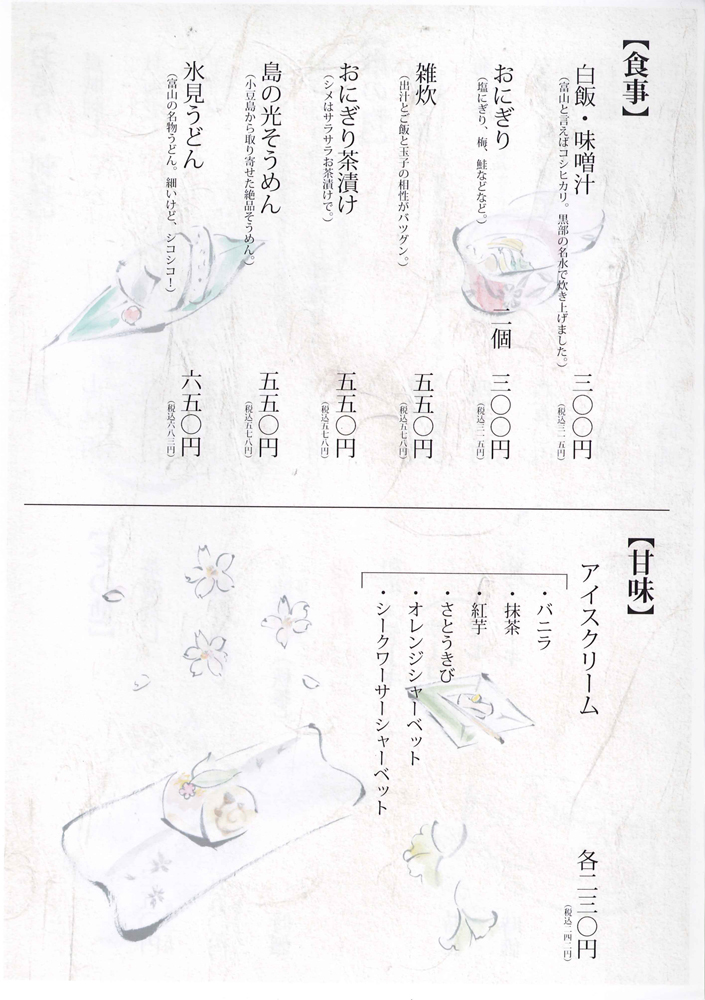 【食事】
白飯・味噌汁
(富山と言えばコシヒカリ。黒部の名水で炊き上げました。)
三〇〇円
(税込三一五円)
おにぎり
(塩にぎり、梅、鮭などなど。)
二個
三〇〇円
(税込三一五円)
雑炊
(出汁とご飯と玉子の相性がバツグン。)
五五〇円
(税込五七八円)
おにぎり茶漬け
(シメはサラサラお茶漬けで。)
五五〇円
(税込五七八円)
島の光そうめん
(小豆島から取り寄せた絶品そうめん。)
五五〇円
(税込五七八円)
氷見うどん
(富山の名物うどん。細いけど、シコシコ!)
六五〇円
(税込六八三円)
【甘味】
アイスクリーム
各二三〇円
(税込二四二円)
・バニラ
・抹茶
・紅芋
・さとうきび
・オレンジシャーベット
・シークワーサーシャーベット